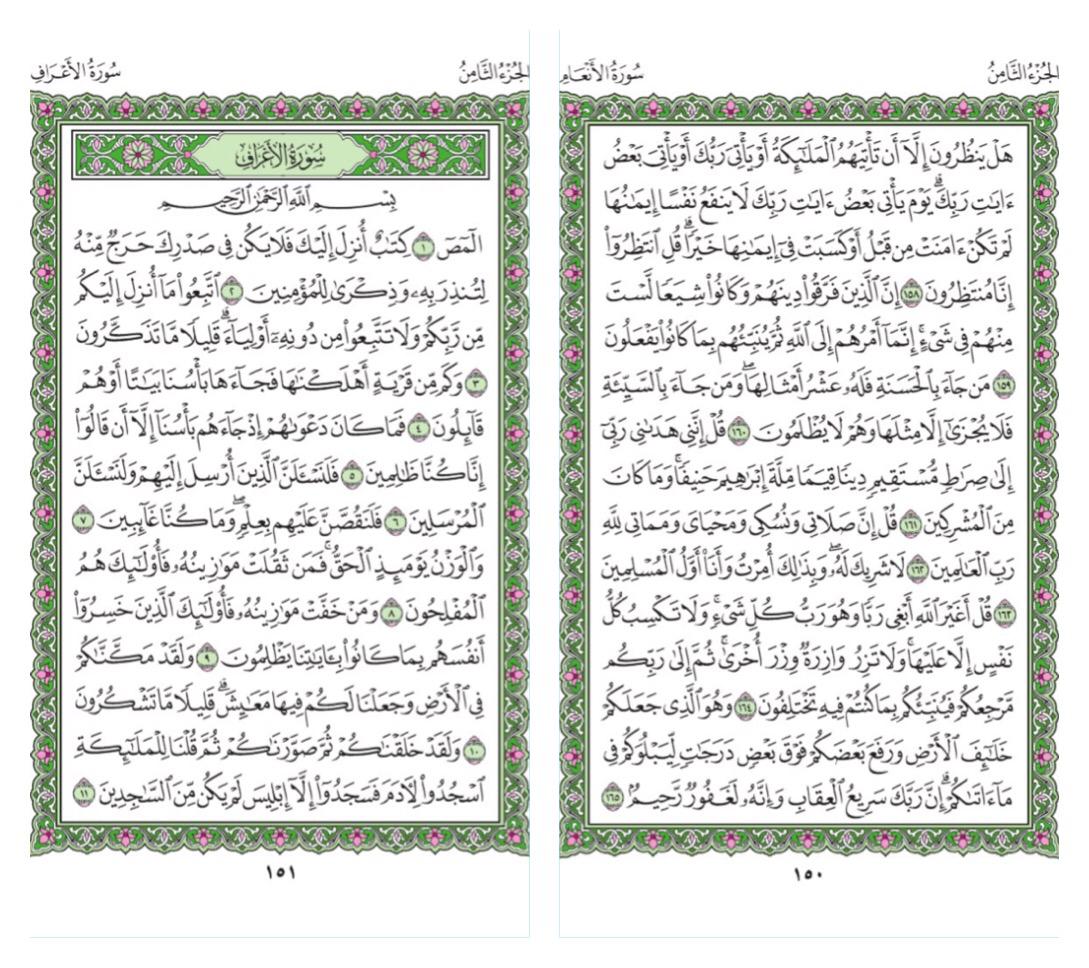 الجُزْءُ الثَّامِنُ
سُورَةُ الأَنْعَامِ
هَلۡ يَنظُرُونَ إِلَّآ أَن تَأۡتِيَهُمُ ٱلۡمَلَٰٓئِكَةُ أَوۡ يَأۡتِيَ رَبُّكَ أَوۡ يَأۡتِيَ بَعۡضُ
ءَايَٰتِ رَبِّكَۗ يَوۡمَ يَأۡتِي بَعۡضُ ءَايَٰتِ رَبِّكَ لَا يَنفَعُ نَفۡسًا إِيمَٰنُهَا
لَمۡ تَكُنۡ ءَامَنَتۡ مِن قَبۡلُ أَوۡ كَسَبَتۡ فِيٓ إِيمَٰنِهَا خَيۡرٗاۗ قُلِ ٱنتَظِرُوٓاْ
إِنَّا مُنتَظِرُونَ ١٥٨ إِنَّ ٱلَّذِينَ فَرَّقُواْ دِينَهُمۡ وَكَانُواْ شِيَعٗا لَّسۡتَ
مِنۡهُمۡ فِي شَيۡءٍۚ إِنَّمَآ أَمۡرُهُمۡ إِلَى ٱللَّهِ ثُمَّ يُنَبِّئُهُم بِمَا كَانُواْ يَفۡعَلُونَ
١٥٩ مَن جَآءَ بِٱلۡحَسَنَةِ فَلَهُۥ عَشۡرُ أَمۡثَالِهَاۖ وَمَن جَآءَ بِٱلسَّيِّئَةِ
فَلَا يُجۡزَىٰٓ إِلَّا مِثۡلَهَا وَهُمۡ لَا يُظۡلَمُونَ ١٦٠ قُلۡ إِنَّنِي هَدَىٰنِي رَبِّيٓ
إِلَىٰ صِرَٰطٖ مُّسۡتَقِيمٖ دِينٗا قِيَمٗا مِّلَّةَ إِبۡرَٰهِيمَ حَنِيفٗاۚ وَمَا كَانَ
مِنَ ٱلۡمُشۡرِكِينَ ١٦١ قُلۡ إِنَّ صَلَاتِي وَنُسُكِي وَمَحۡيَايَ وَمَمَاتِي لِلَّهِ
رَبِّ ٱلۡعَٰلَمِينَ ١٦٢ لَا شَرِيكَ لَهُۥۖ وَبِذَٰلِكَ أُمِرۡتُ وَأَنَا۠ أَوَّلُ ٱلۡمُسۡلِمِينَ
١٦٣ قُلۡ أَغَيۡرَ ٱللَّهِ أَبۡغِي رَبّٗا وَهُوَ رَبُّ كُلِّ شَيۡءٖۚ وَلَا تَكۡسِبُ كُلُّ
نَفۡسٍ إِلَّا عَلَيۡهَاۚ وَلَا تَزِرُ وَازِرَةٞ وِزۡرَ أُخۡرَىٰۚ ثُمَّ إِلَىٰ رَبِّكُم
مَّرۡجِعُكُمۡ فَيُنَبِّئُكُم بِمَا كُنتُمۡ فِيهِ تَخۡتَلِفُونَ ١٦٤ وَهُوَ ٱلَّذِي جَعَلَكُمۡ
خَلَٰٓئِفَ ٱلۡأَرۡضِ وَرَفَعَ بَعۡضَكُمۡ فَوۡقَ بَعۡضٖ دَرَجَٰتٖ لِّيَبۡلُوَكُمۡ فِي
مَآ ءَاتَىٰكُمۡۗ إِنَّ رَبَّكَ سَرِيعُ ٱلۡعِقَابِ وَإِنَّهُۥ لَغَفُورٞ رَّحِيمُۢ ١٦٥
١٥٠
الجُزْءُ الثَّامِنُ
سُورَةُ الأَعْرَافِ
سُورَةُ الأَعْرَافِ
بِسۡمِ ٱللَّهِ ٱلرَّحۡمَٰنِ ٱلرَّحِيمِ
الٓمٓصٓ ١ كِتَٰبٌ أُنزِلَ إِلَيۡكَ فَلَا يَكُن فِي صَدۡرِكَ حَرَجٞ مِّنۡهُ
لِتُنذِرَ بِهِۦ وَذِكۡرَىٰ لِلۡمُؤۡمِنِينَ ٢ ٱتَّبِعُواْ مَآ أُنزِلَ إِلَيۡكُم
مِّن رَّبِّكُمۡ وَلَا تَتَّبِعُواْ مِن دُونِهِۦٓ أَوۡلِيَآءَۗ قَلِيلٗا مَّا تَذَكَّرُونَ
٣ وَكَم مِّن قَرۡيَةٍ أَهۡلَكۡنَٰهَا فَجَآءَهَا بَأۡسُنَا بَيَٰتًا أَوۡ هُمۡ
قَآئِلُونَ ٤ فَمَا كَانَ دَعۡوَىٰهُمۡ إِذۡ جَآءَهُم بَأۡسُنَآ إِلَّآ أَن قَالُوٓاْ
إِنَّا كُنَّا ظَٰلِمِينَ ٥ فَلَنَسۡـَٔلَنَّ ٱلَّذِينَ أُرۡسِلَ إِلَيۡهِمۡ وَلَنَسۡـَٔلَنَّ
ٱلۡمُرۡسَلِينَ ٦ فَلَنَقُصَّنَّ عَلَيۡهِم بِعِلۡمٖۖ وَمَا كُنَّا غَآئِبِينَ ٧
وَٱلۡوَزۡنُ يَوۡمَئِذٍ ٱلۡحَقُّۚ فَمَن ثَقُلَتۡ مَوَٰزِينُهُۥ فَأُوْلَٰٓئِكَ هُمُ
ٱلۡمُفۡلِحُونَ ٨ وَمَنۡ خَفَّتۡ مَوَٰزِينُهُۥ فَأُوْلَٰٓئِكَ ٱلَّذِينَ خَسِرُوٓاْ
أَنفُسَهُم بِمَا كَانُواْ بِـَٔايَٰتِنَا يَظۡلِمُونَ ٩ وَلَقَدۡ مَكَّنَّٰكُمۡ
فِي ٱلۡأَرۡضِ وَجَعَلۡنَا لَكُمۡ فِيهَا مَعَٰيِشَۗ قَلِيلٗا مَّا تَشۡكُرُونَ
١٠ وَلَقَدۡ خَلَقۡنَٰكُمۡ ثُمَّ صَوَّرۡنَٰكُمۡ ثُمَّ قُلۡنَا لِلۡمَلَٰٓئِكَةِ
ٱسۡجُدُواْ لِأٓدَمَ فَسَجَدُوٓاْ إِلَّآ إِبۡلِيسَ لَمۡ يَكُن مِّنَ ٱلسَّٰجِدِينَ ١١
١٥١